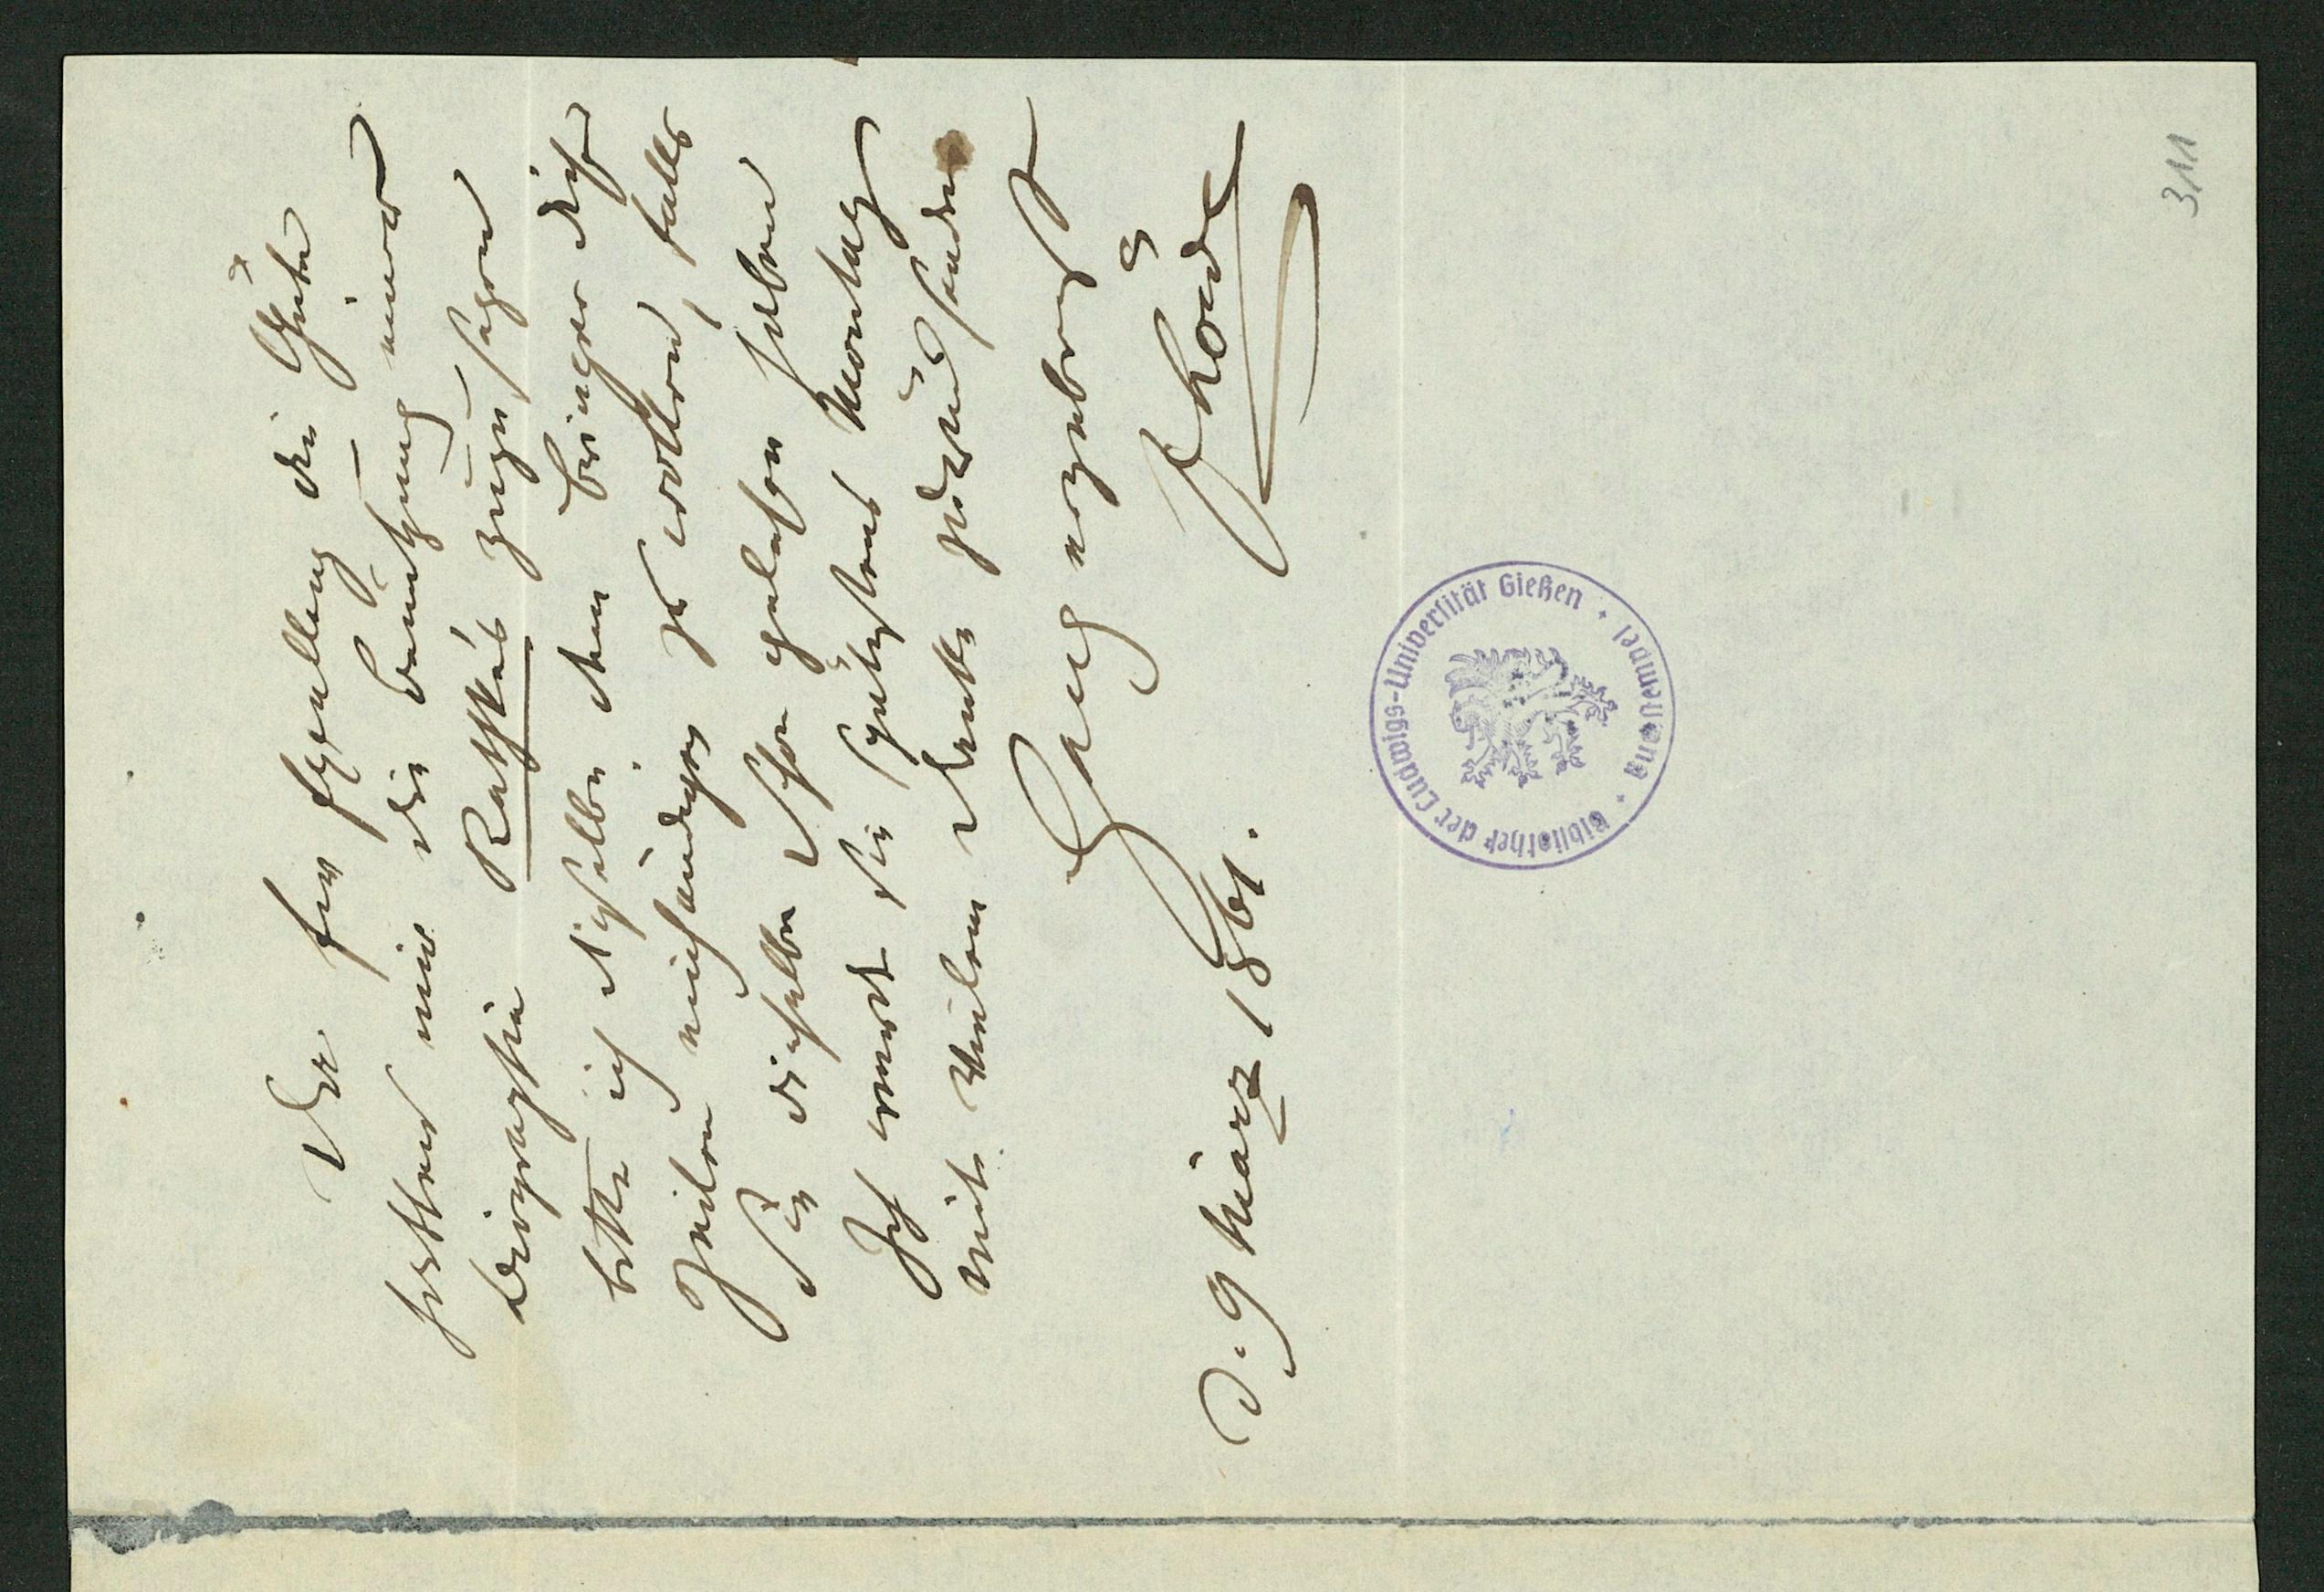 Da Euer Exzellenz die Güte
hatten mir die Benutzung einer
Biographie Ratzkas zuzusagen
bitte ich dieselbe dem Bringer dieser
Zeilen einhändigen zu wollen, falls
Sie dieselbe schon gelesen haben
Ich werde sie spätestens Montag
mit vielem Danke zurücksenden
Ganz ergebenst
Rhode
d. 9 März 1861.
Bibliothek der Ludwigs-Universität Gießen
3111